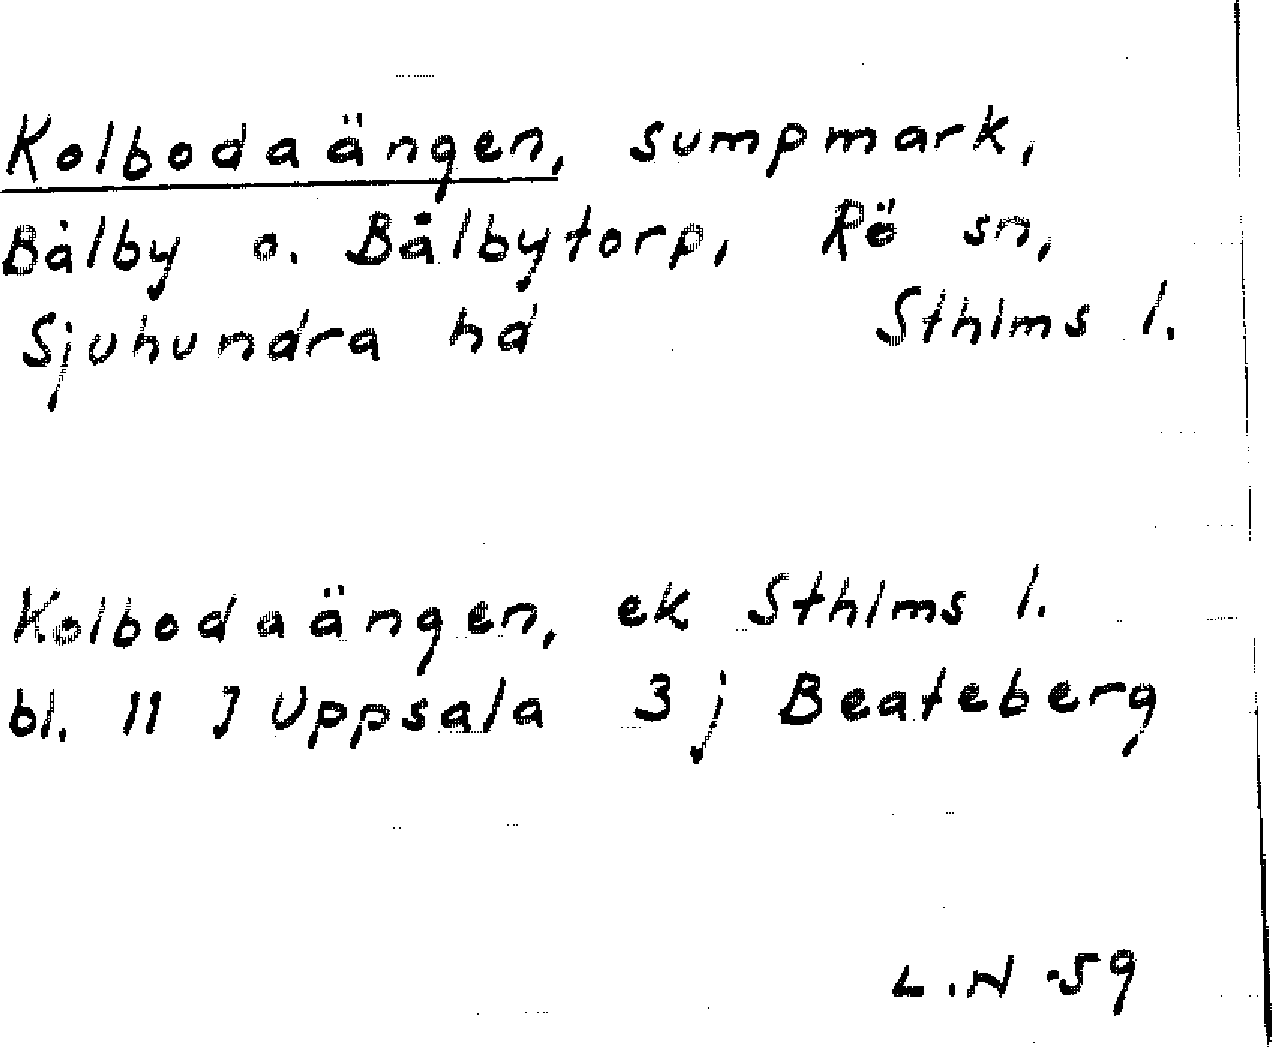 Kolbodaängen, sumpmark,
Bålby o. Bålbytorp, Rö sn,
Sjuhundra hd Sthlms l.
Kolbodaängen, ek Sthlms l.
bl. 11 J Uppsala 3 j Beateberg
L.N -59